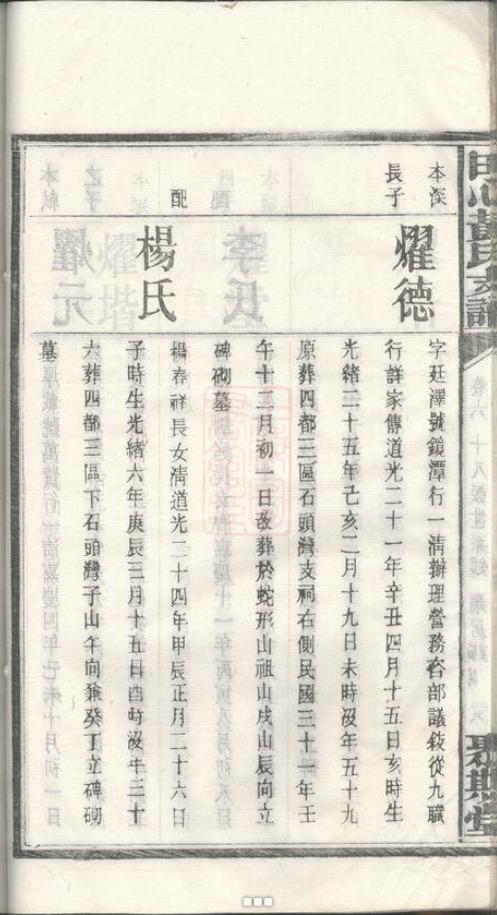 田心黃氏支譜
卷六
聚斯堂
本深
長子
燿德
字廷澤號鏡潭行一淸辦理營務咨部議敍從九職
行詳家傳道光二十一年辛丑四月十五日亥時生
光緒二十五年己亥二月十九日未時沒年五十九
原葬四都三區石頭灣支祠右側民國三十一年壬
午十二月初一日改葬於蛇形山祖山戌山辰向立
碑砌墓
配
楊氏
楊春祥長女淸道光二十四年甲辰正月二十六日
子時生光緒六年庚辰三月十五日酉時沒年三十
六葬四都三區下石頭灣子山午向兼癸丁立碑砌
墓